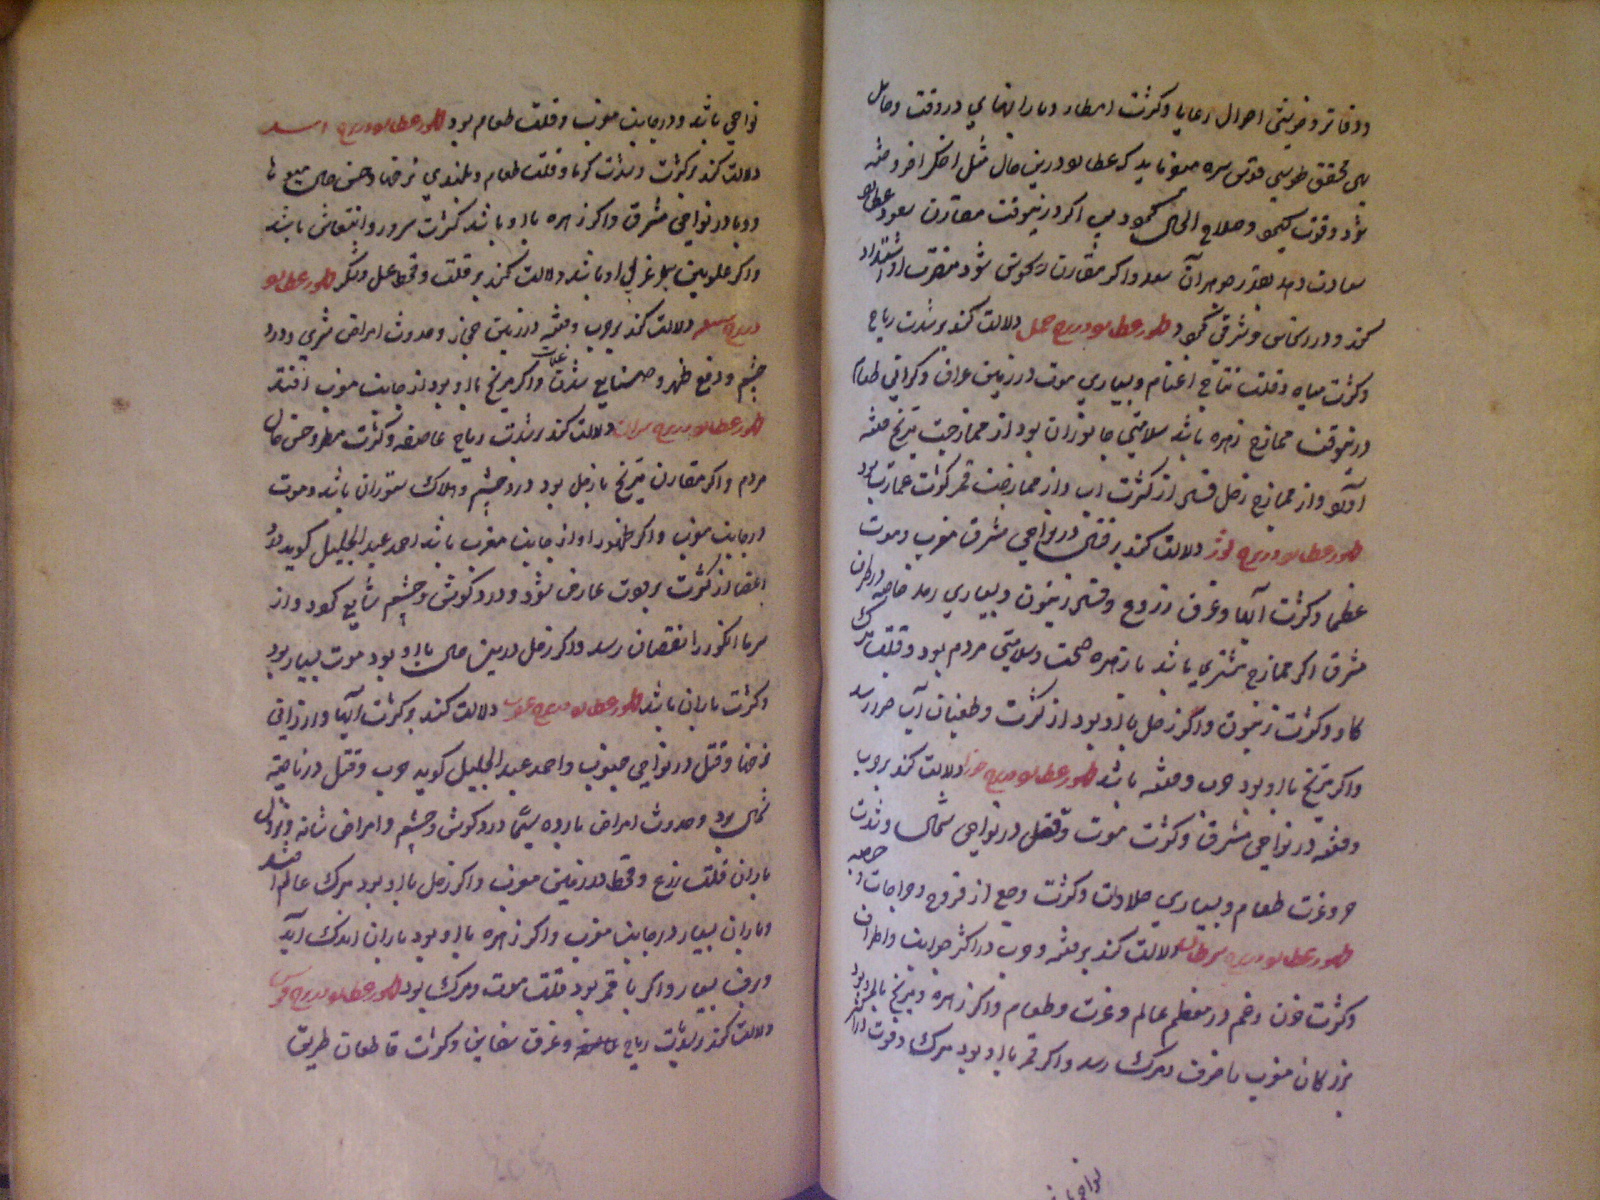 و خوشی احوال رعایا و کثرت امطار و بارانهای در وقت و حاصل
محقق طوسی قدس سره میفرماید که عطارد درین حال مثل اخگر افروخته
شود و قوت گیرد و صلاح الحال گردد پس اگر درینوقت مقارن سعود عطارد
سعادت دهد بقدر جوهر آن سعد و اگر مقارن نحوس شود مضرت او اشتداد
کند و در رستاس و شرقی گردد ظهور عطارد در برج حمل دلالت کند بر شدت ریاح
و کثرت میاه و قلت نتاج اغنام و بیماری موت در زمین عراق و گرانی طعام
درینوقت ممازج زهره باشد سلامتی جانوران بود از ممازجت مریخ فتنه
افتد و از ممازج زحل فساد از کثرت آب و از ممازجت قمر کثرت عمارت بود
ظهور عطارد در برج ثور دلالت کند بر قتال در نواحی مشرق مغرب و موت
عظما و کثرت آبها و غرق زروع و فساد زیتون و بیماری رمد خاصه در طرف
مشرق اگر ممازج مشتری باشد یا زهره صحت و سلامتی مردم بود و قلت مرگ
گاو و کثرت زیتون و اگر زحل با او بود از کثرت و طغیان آب ضرر رسد
و اگر مریخ با او بود حرب و فتنه باشد ظهور عطارد در برج جوزا دلالت کند بر حرب
و فتنه در نواحی مشرق و کثرت موت و قتل در نواحی شمال و شدت
حر و عزت طعام و بیماری حلاوت و کثرت وجع از قروح و جراحات و حصبه
ظهور عطارد در برج سرطان دلالت کند بر فتنه و حرب در اکثر جوانب و اطراف
و کثرت خون و غم در معظم عالم و عزت و طعام و اگر زهره و مریخ با او بود
بزرگان مغرب را خرف و مرگ رسد و اگر قمر با او بود مرگ و فوت در اکثر
نواحی باشد
نواحی باشد و در جانب مغرب و قلت طعام بود ظهور عطارد در برج اسد
دلالت کند بر کثرت و شدت گرما و قلت طعام و بلندی نرخها و حسن حال
و وبا در نواحی مشرق و اگر زهره با او باشد کثرت سرور و انتعاش باشد
و اگر علویین بر غربی او باشد دلالت کند بر قلت و قحط عسل و شکر ظهور عطارد
در برج سنبله دلالت کند بر حرب و فتنه در زمین حجاز و حدوث امراض مثری و درد
چشم و وجع ظهر و اگر مریخ با او بود از جانب مغرب افتد
ظهور عطارد در برج میزان دلالت کند بر شدت ریاح عاصفه و کثرت مطر و حسن حال
مردم و اگر مقارن مریخ یا زحل بود درد چشم و هلاک ستوران باشد و موت
در جانب مغرب و اگر ظهور او از جانب مغرب باشد احمد عبد الجلیل گوید
اعضا از کثرت برودت عارض شود و درد گوش و چشم شایع گردد و از
سرما انگور را نقصان رسد و اگر زحل درین حال با او بود موت بسیار بود
و کثرت باران باشد ظهور عطارد در برج عقرب دلالت کند بر کثرت آبها و ارزانی
نرخها و قتل در نواحی جنوب و احمد عبد الجلیل گوید حرب و قتل در ناحیه
شمال بود و حدوث امراض بارده سیّما درد گوش و چشم و امراض شانه و نزول
باران قلت زرع و قحط در زمین مغرب و اگر زحل با او بود مرگ عالم افتد
و باران بسیار در جانب مغرب و اگر زهره با او بود باران اندک آید
و برف بسیار و اگر با قمر بود قلت موت و مرگ بود ظهور عطارد در برج قوس
دلالت کند بر شدت ریاح عاصفه و غرق سفاین و کثرت قاطعان طریق